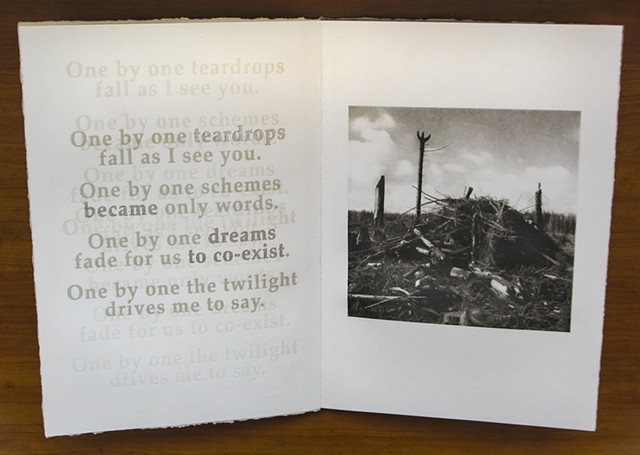 One by one teardrops
fall as I see you.
One by one schemes
One by one teardrops
fall as I see you.
One by one dreams
One by one schemes
became only words.
One by one the twilight
One by one dreams
fade for us to co-exist.
became only words.
One by one the twilight
drives me to say.
fade for us to co-exist.
One by one the twilight
drives me to say.